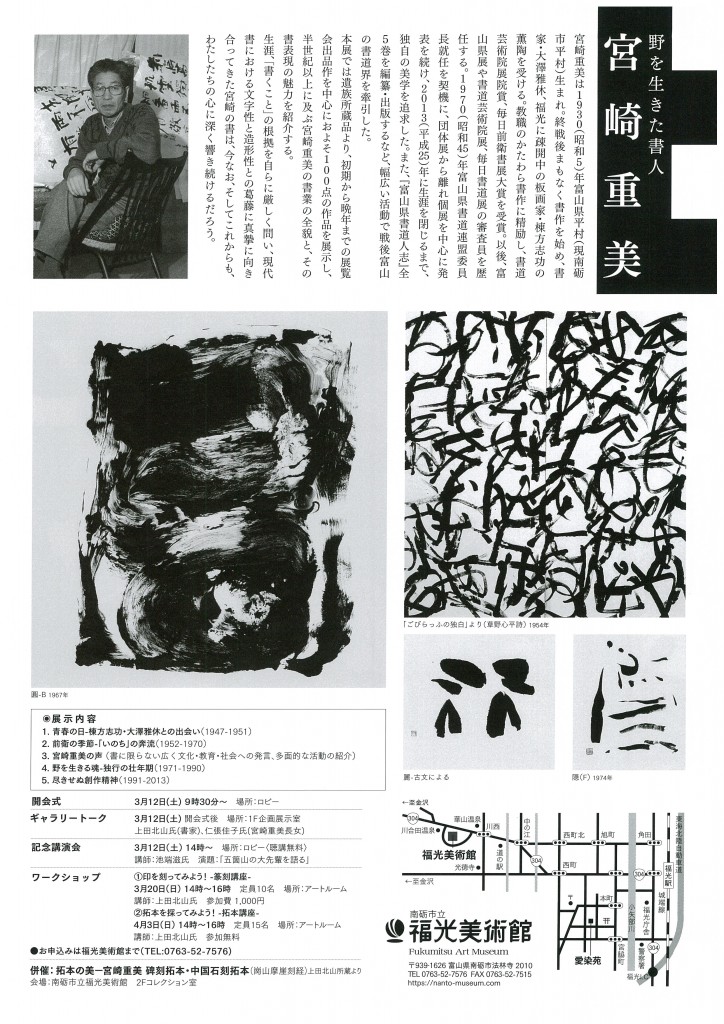 野を生きた書人
宮崎重美
宮崎重美は1930(昭和5)年富山県平村(現南砺
市平村)生まれ。終戦後まもなく書作を始め、書
家・大澤雅休、福光に疎開中の板画家・棟方志功の
薫陶を受ける。教職のかたわら書作に精励し、書道
芸術院展院賞、毎日前衛書展大賞を受賞。以後、富
山県展や書道芸術院展、毎日書道展の審査員を歴
任する。1970(昭和45)年富山県書道連盟委員
長就任を契機に、団体展から離れ個展を中心に発
表を続け、2013(平成25)年に生涯を閉じるまで、
独自の美学を追求した。また、『富山県書道人志』全
5巻を編纂・出版するなど、幅広い活動で戦後富山
の書道界を牽引した。
本展では遺族所蔵品より、初期から晩年までの展覧
会出品作を中心におよそ100点の作品を展示し、
半世紀以上に及ぶ宮崎重美の書業の全貌と、その
書表現の魅力を紹介する。
生涯、「書くこと」の根拠を自らに厳しく問い、現代
書における文字性と造形性との葛藤に真摯に向き
合ってきた宮崎の書は、今なお、そしてこれからも、
わたしたちの心に深く響き続けるだろう。
「ごびらっふの独白」より(草野心平詩) 1954年
圓-B 1967年
麗-古文による
隠(F) 1974年
◉展示内容
1. 青春の日-棟方志功・大澤雅休との出会い(1947-1951)
2. 前衛の季節-「いのち」の奔流(1952-1970)
3. 宮崎重美の声(書に限らない広く文化・教育・社会への発言、多面的な活動の紹介)
4. 野を生きる魂-独行の壮年期(1971-1990)
5. 尽きせぬ創作精神(1991-2013)
開会式 3月12日(土) 9時30分〜 場所:ロビー
ギャラリートーク 3月12日(土) 開会式後 場所:1F企画展示室
上田北山氏(書家)、仁張佳子氏(宮崎重美長女)
記念講演会 3月12日(土) 14時〜 場所:ロビー(聴講無料)
講師:池端滋氏 演題:「五箇山の大先輩を語る」
ワークショップ ①印を刻ってみよう! -篆刻講座-
3月20日(日) 14時〜16時 定員10名 場所:アートルーム
講師:上田北山氏 参加費 1,000円
②拓本を採ってみよう! -拓本講座-
4月3日(日) 14時〜16時 定員15名 場所:アートルーム
講師:上田北山氏 参加無料
●お申込みは福光美術館まで(TEL:0763-52-7576)
併催:拓本の美ー宮崎重美 碑刻拓本・中国石刻拓本(崗山摩崖刻経)上田北山所蔵より
会場:南砺市立福光美術館 2Fコレクション室
←至金沢
304
華山温泉
川合田温泉
川西
中の江
西町北
旭町
角田
東海北陸自動車道
福光美術館
光徳寺
道の駅
304
西町
304
福光駅
城端線
←至金沢
本町
小矢部川
福光庁舎
〒
愛染苑
宮脇町
警察署
304
福光I.C
南砺市立
福光美術館
Fukumitsu Art Museum
〒939-1626 富山県南砺市法林寺 2010
TEL 0763-52-7576 FAX 0763-52-7515
https://nanto-museum.com